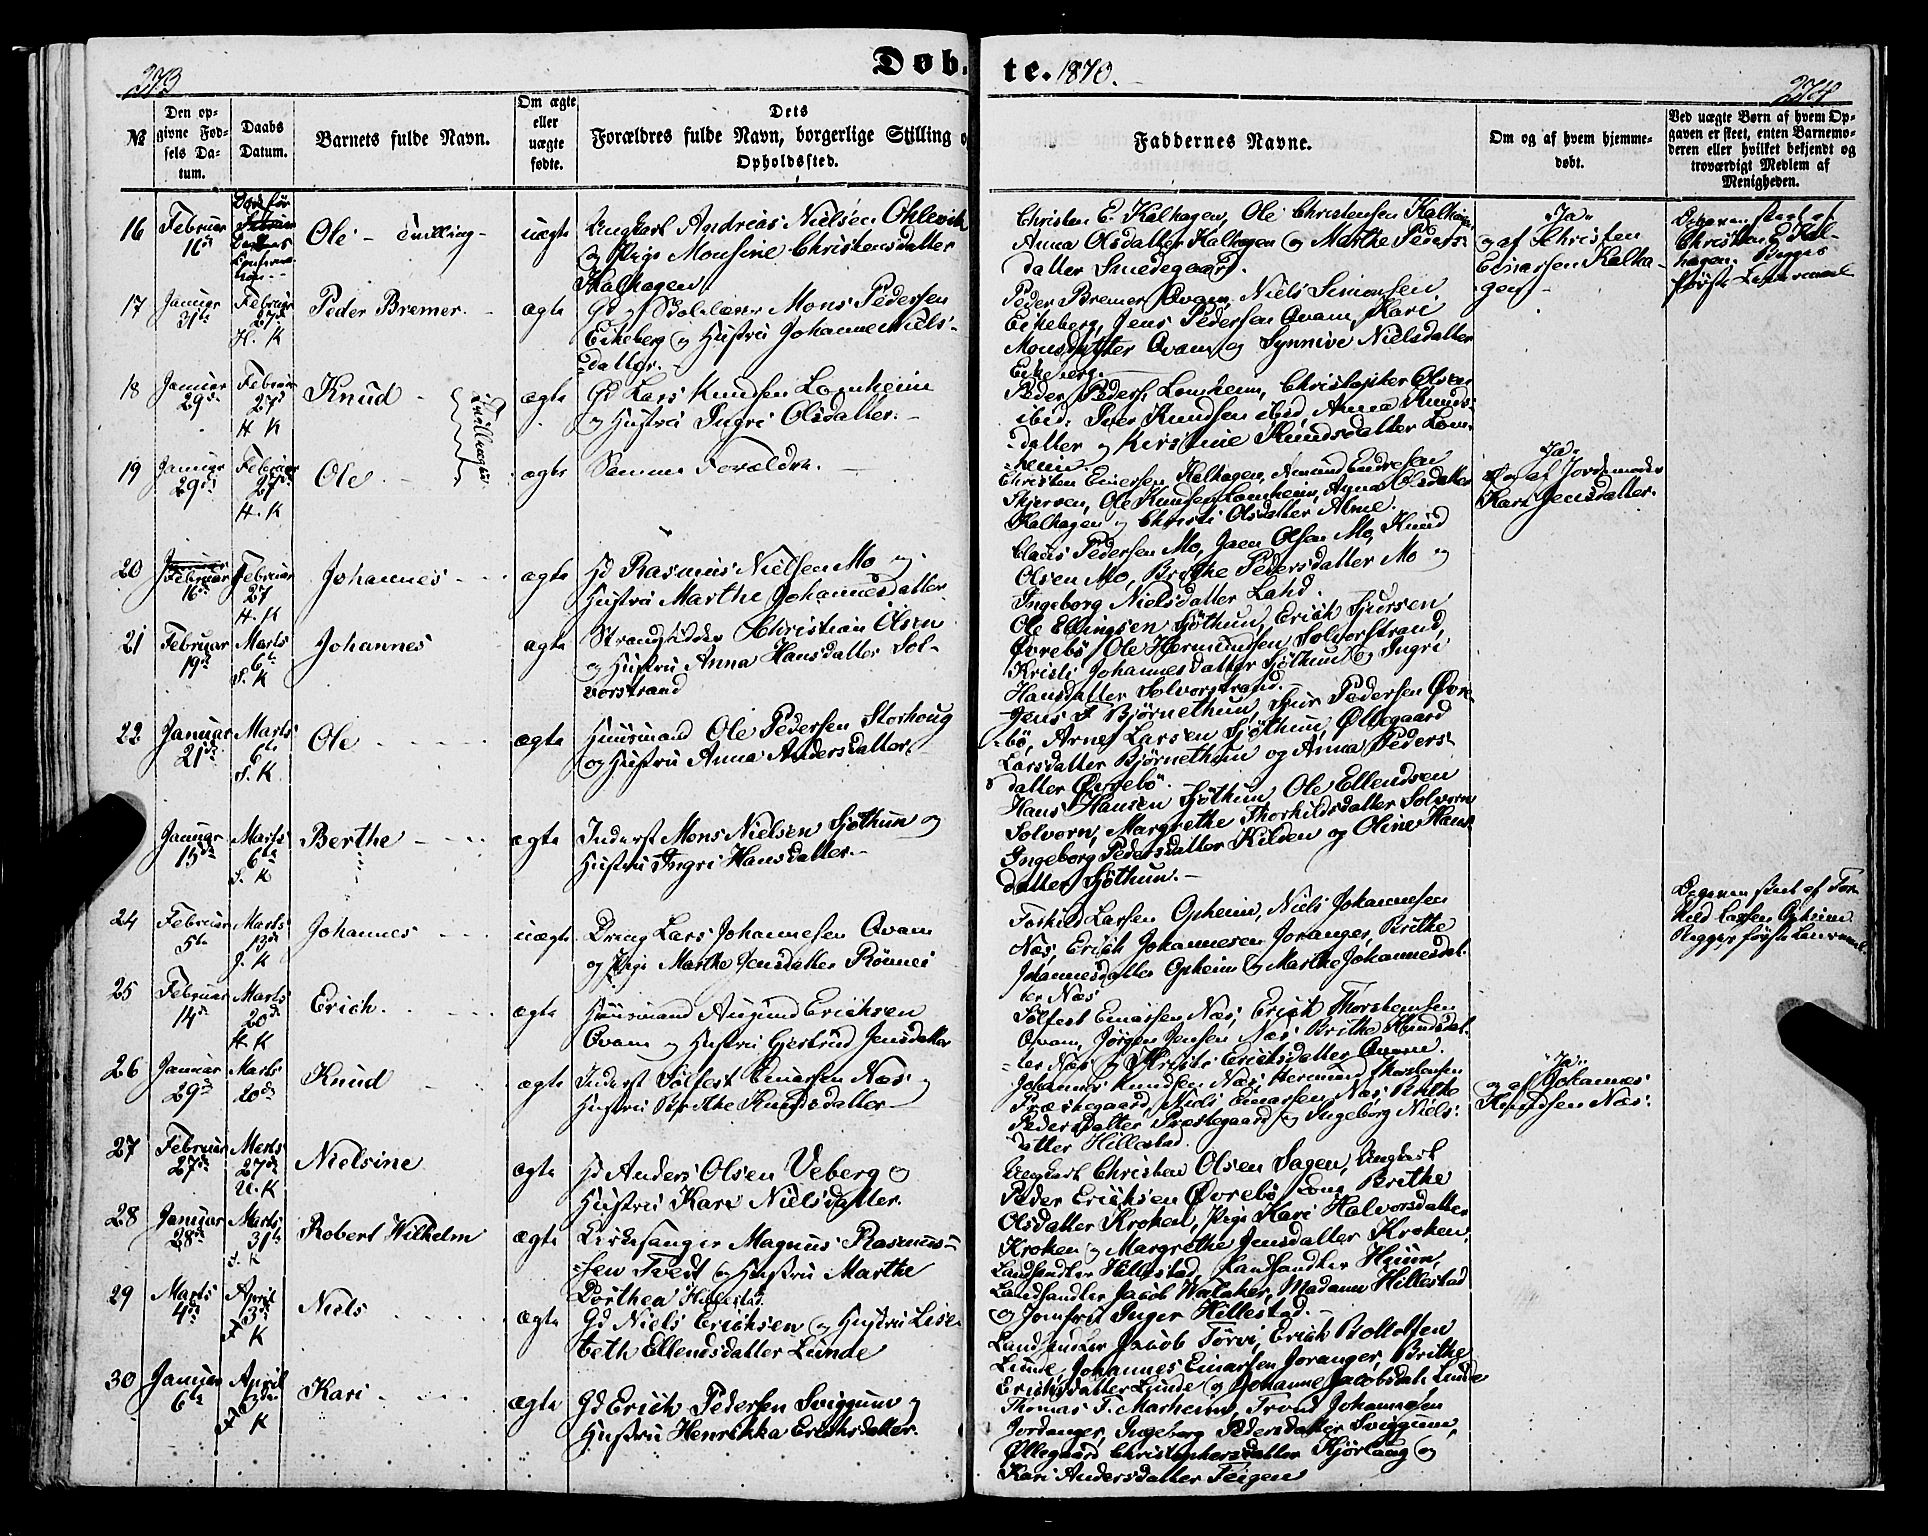 Døb-te. 1870.
273
274
№
Den op-
givne Fød-
sels Da-
tum.
Daabs
Datum.
Barnets fulde Navn.
Om ægte
eller
uægte
fødte.
Dets
Forældres fulde Navn, borgerlige Stilling o
Opholdssted.
Faddernes Navne.
Om og af hvem hjemme-
døbt.
Ved uægte Børn af hvem Op-
gaven er skeet, enten Barnemo-
deren eller hvilket bekjendt og
troværdigt Medlem af
Menigheden.
16 Februar 16de
Ole - Tvilling - uægte
Ungkarl Andreas Nielsen Ohlevik
og Pige Monsine Christensdatter
Kalhagen
Christen E. Kalhagen, Ole Christensen Kalhagen
Anna Olsdatter Kalhagen og Marthe Peders-
datter Smedegaard.
"Ja"
og af Christen
Einarsen Kalha-
gen
Opgaven skeet af
Christen E. Kal-
hagen. Begges
første Leiermaal
17 Januar 31te Februar 27de H. K
Peder Bremer. - ægte
Gd og Skolelærer Mons Pedersen
Eikeberg og Hustru Johanne Niels-
datter.
Peder Bremer Qvam, Niels Simonsen
Eikeberg, Jens Pedersen Qvam, Kari
Monsdatter Qvam og Synnive Nielsdatter
Eikeberg.
18 Januar 29de Februar 27de H K
Knud Tvillinger ægte
Gd Lars Knudsen Lomheim
og Hustru Ingri Olsdatter.
Peder Peders. Lomheim, Christopher Olsen
ibid. Iver Knudsen ibid Anna Knuds-
datter og Kirstine Knudsdatter Lom-
heim.
19 Januar 29de Februar 27de H. K
Ole - ægte
Samme Forældre. -
Christen Einersen Kalhagen, Amund Endresen
Skjersen, Ole Knudsen Lomheim, Anna Olsdatter
Kalhagen og Christi Olsdatter Alme.
"Ja"
og af Jordemoder
Kari Jensdatter.
20 Februar 16de Februar 27 H. K
Johannes - ægte
Gd Rasmus Nielsen Mo og
Hustru Marthe Johannesdatter
Claus Pedersen Mo, Jaen Olsen Mo, Knud
Olsen Mo, Brithe Pedersdatter Mo og
Ingeborg Nielsdatter Lahd.
21 Februar 19de Marts 6te S. K
Johannes ægte
Strandsidder Christian Olsen
og Hustru Anna Hansdatter Sol-
vorstrand
Ole Ellingsen Sjøthun, Erich Sjursen
Øvrebø, Ole Hermundsen Solvorstrand,
Kristi Johannesdatter Sjøthun og Ingri
Hansdatter Solvorstrand.
22 Januar 21de Marts 6te S. K
Ole ægte
Huusmand Ole Pedersen Storhoug
og Hustru Anna Andersdatter.
Jens F Bjørnethun, Sjur Pedersen Øvre-
bø, Arne Larsen Sjøthun, Øllegaard
Larsdatter Bjørnethun og Anna Peders-
datter Øvrebø.
Januar 15de Marts 6te S. K
Berthe ægte
Inderst Mons Nielsen Sjøthun og
Hustru Ingri Hansdatter.
Hans Hansen Sjøthun Ole Ellendsen
Solvorn, Margrethe Thorkildsdatter Solvorn
Ingeborg Pedersdatter Kilden og Oline Hans-
datter Sjøthun. -
24 Februar 5te Marts 13de J. K
Johannes uægte
Dreng Lars Johannesen Qvam
og Pige Marthe Jensdatter Rønnei
Torkild Larsen Opheim, Niels Johannesen
Næs, Erich Johannesen Joranger, Brithe
Johannesdatter Opheim og Marthe Johannesdat-
ter Næs
Opgaven skeet af Tor-
kild Larsen Opheim
Begges første Leiermaal.
25 Februar 14de Marts 20de H. K
Erich. ægte
Huusmand Augund Erichsen
Qvam og Hustru Gjertrud Jensdatter
Sølfest Einarsen Næs, Erich Thorstensen
Qvam, Jørgen Jensen Næs Brithe Knudsdat-
ter Næs og Kristi Erichsdatter Qvam.
26 Januar 29de Marts 20de
Knud ægte
Inderst Sølfest Einarsen Næs og
Hustru Brithe Knudsdatter
Johannes Knudsen Næs, Hermund Thorstensen
Præstegaard, Niels Einarsen Næs, Brithe
Pedersdatter Præstegaard og Ingeborg Niels-
datter Hillestad.
"Ja"
og af Johannes
Knudsen Næs.
27 Februar 27de Marts 27de U. K
Nielsine ægte
Gd Anders Olsen Veberg og
Hustru Kari Nielsdatter.
Ungkarl Christen Olsen Sagen, Ungkarl
Peder Erichsen Øvrebø, Kone Brithe
Olsdatter Kroken, Pige Kari Halvorsdatter
Kroken og Margrethe Jensdatter Kroken.
28 Januar 28de Marts 31te S. K
Robert Wilhelm ægte
Kirkesanger Magnus Rasmus-
sen Tvedt og Hustru Marthe
Dorthea Hillestad.
Landhandler Hillestad, Landhandler Heium,
Landhandler Jacob Walaker, Madame Hillestad
og Jomfru Inger Hillestad.
29 Marts 4de April 3de F K
Niels ægte
Gd Niels Erichsen og Hustru Lise-
beth Ellendsdatter Lunde
Landhandler Jacob Tørvi, Erich Boltolfsen
Lunde, Johannes Einarsen Joranger, Brithe
Erichsdatter Lunde og Johanne Jacobsdatr Lunde
30 Januar 6te April 3die F K
Kari ægte
Gd Erich Pedersen Sviggum og
Hustru Henrikka Erichsdatter.
Thomas T. Marheim, Trond Johannesen
Jordanger, Ingeborg Pedersdatter Sviggum,
Øllegaard Christophersdatter Kjørlaug og
Kari Andersdatter Feigen